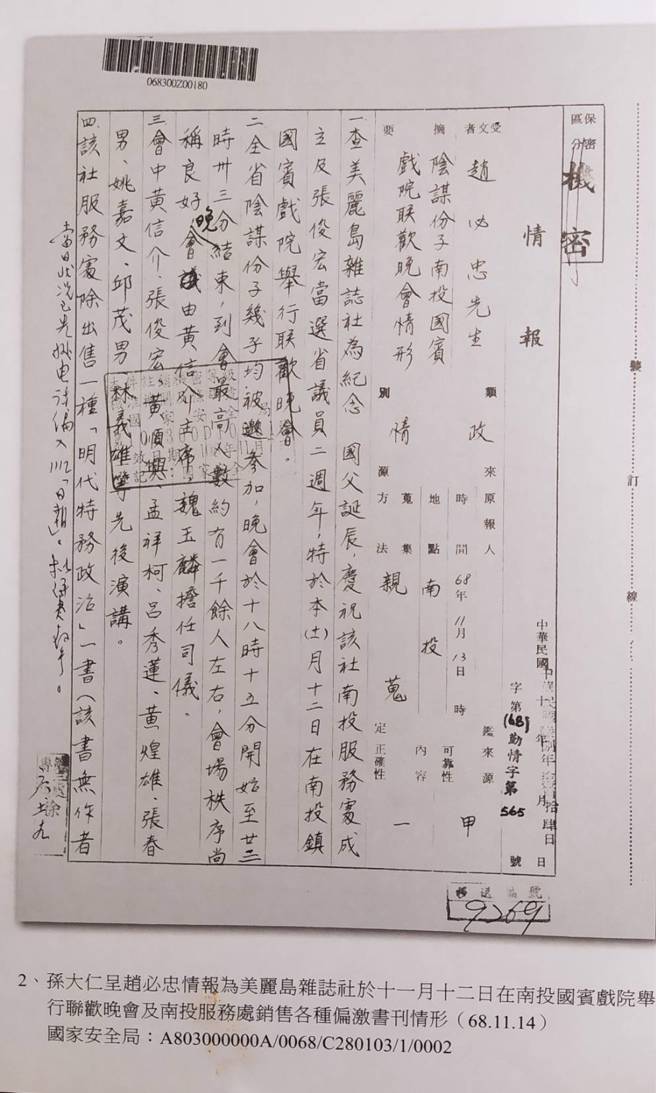 068300Z00180
裝訂線
保密區分
機密
情報
中華民國
年
月
日
字第
(68)勤情字第565
號
受文者
趙必忠先生
摘要
陰謀份子南投國賓
戲院聯歡晚會情形
類別
政情
來源
原報人
時間
68年11月13日
時
地點
南投
蒐集方法
親蒐
鑑定
來源可靠性
甲
內容正確性
一
一查美麗島雜誌社為紀念 國父誕辰,慶祝該社南投服務處成
立及張俊宏當選省議員二週年,特於本(十一)月十二日在南投鎮
國賓戲院舉行联歡晚會。
二全省陰謀份子幾乎均被邀參加,晚會於十八時十五分開始至廿三
時卅三分結束,到會最高人數約有一千餘人左右,會場秩序尚
稱良好,晚會由黃信介主席,魏玉麟擔任司儀。
三會中黃信介、張俊宏、黃順興、孟祥柯、呂秀蓮、黃煌雄、張春
男、姚嘉文、邱茂男、林義雄等先後演講。
四該社服務處除出售一種「明代特務政治」一書(該書無作者
移送編號
9269
2、孫大仁呈趙必忠情報為美麗島雜誌社於十一月十二日在南投國賓戲院舉
行聯歡晚會及南投服務處銷售各種偏激書刊情形(68.11.14)
國家安全局:A803000000A/0068/C280103/1/0002